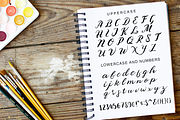 UPPERCASE
A B C D E F G
H I J K L M N
O P Q R S T
U V W X Y Z
LOWERCASE AND NUMBERS
a b c d e f g h i
j k l m n o p q r
s t u v w x y z